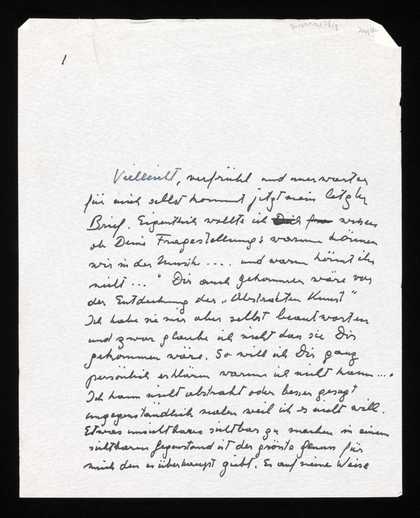 1
Vielleicht, verfrüht und unerwartet
für mich selbst kommt jetzt mein letzter
Brief. Eigentlich wollte ich wissen
ob Deine Fragestellung: warum können
wir in der Musik .... und warum könnt ihr
nicht ..." Dir auch gekommen wäre vor
der Entdeckung der „Abstrakten Kunst"
Ich habe sie mir aber selbst beantwortet
und zwar glaube ich nicht das sie Dir
gekommen wäre. So will ich Dir ganz
persönlich erklären warum ich nicht kann....
Ich kann nicht abstrakt oder besser gesagt
ungegenständlich malen weil ich es nicht will.
Etwas unsichtbares sichtbar zu machen in einem
sichtbaren Gegenstand ist der größte Genuss für
mich den es überhaupt giebt. Es auf meine Weise